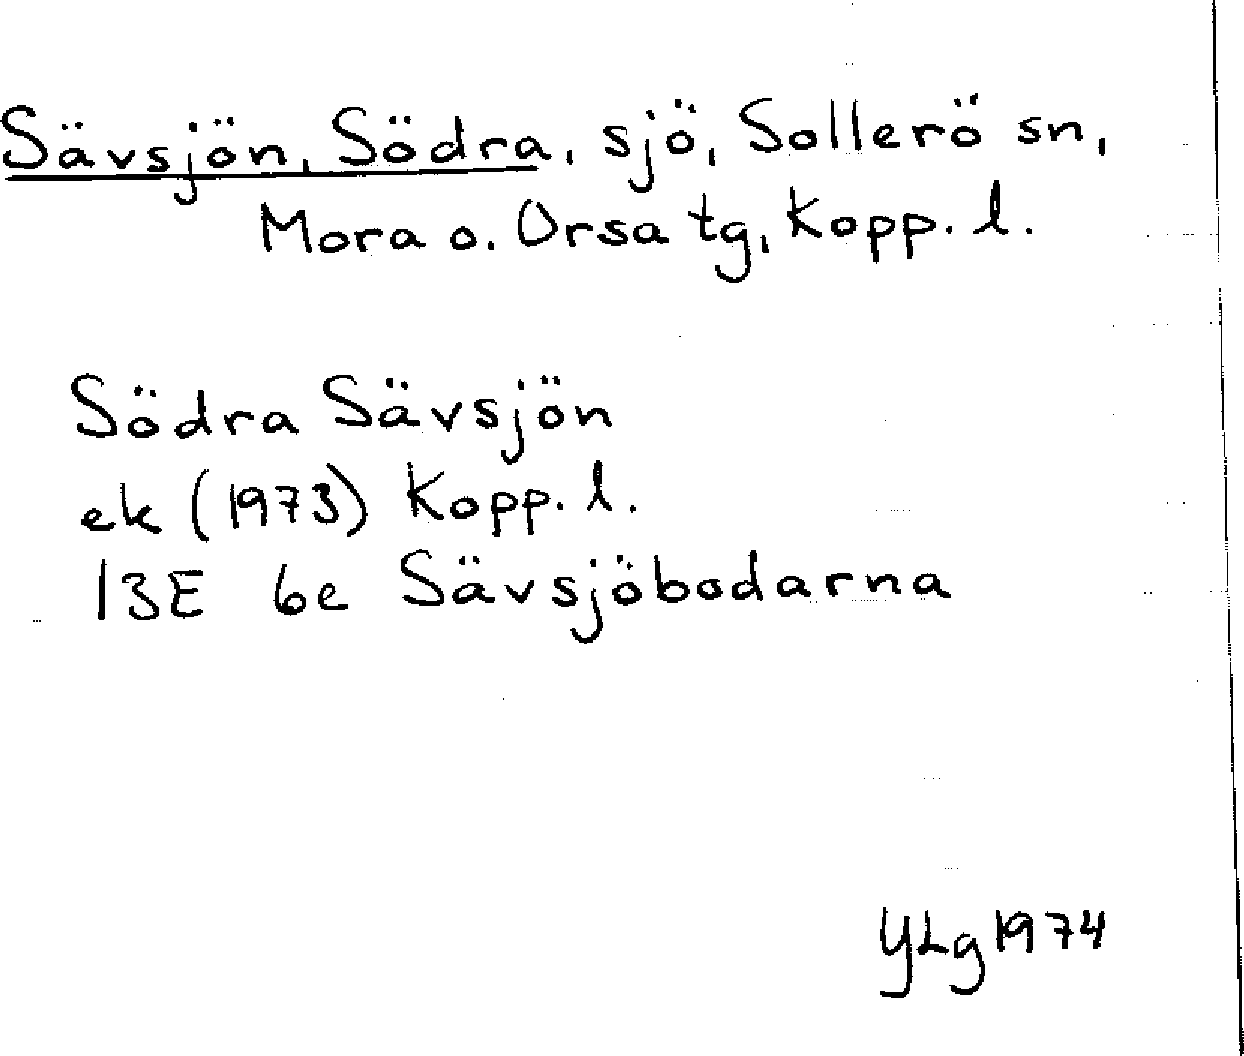 Sävsjön, Södra, sjö, Sollerö sn,
Mora o. Orsa tg, Kopp. l.
Södra Sävsjön
ek (1973) Kopp. l.
13E 6e Sävsjöbodarna
YLg 1974